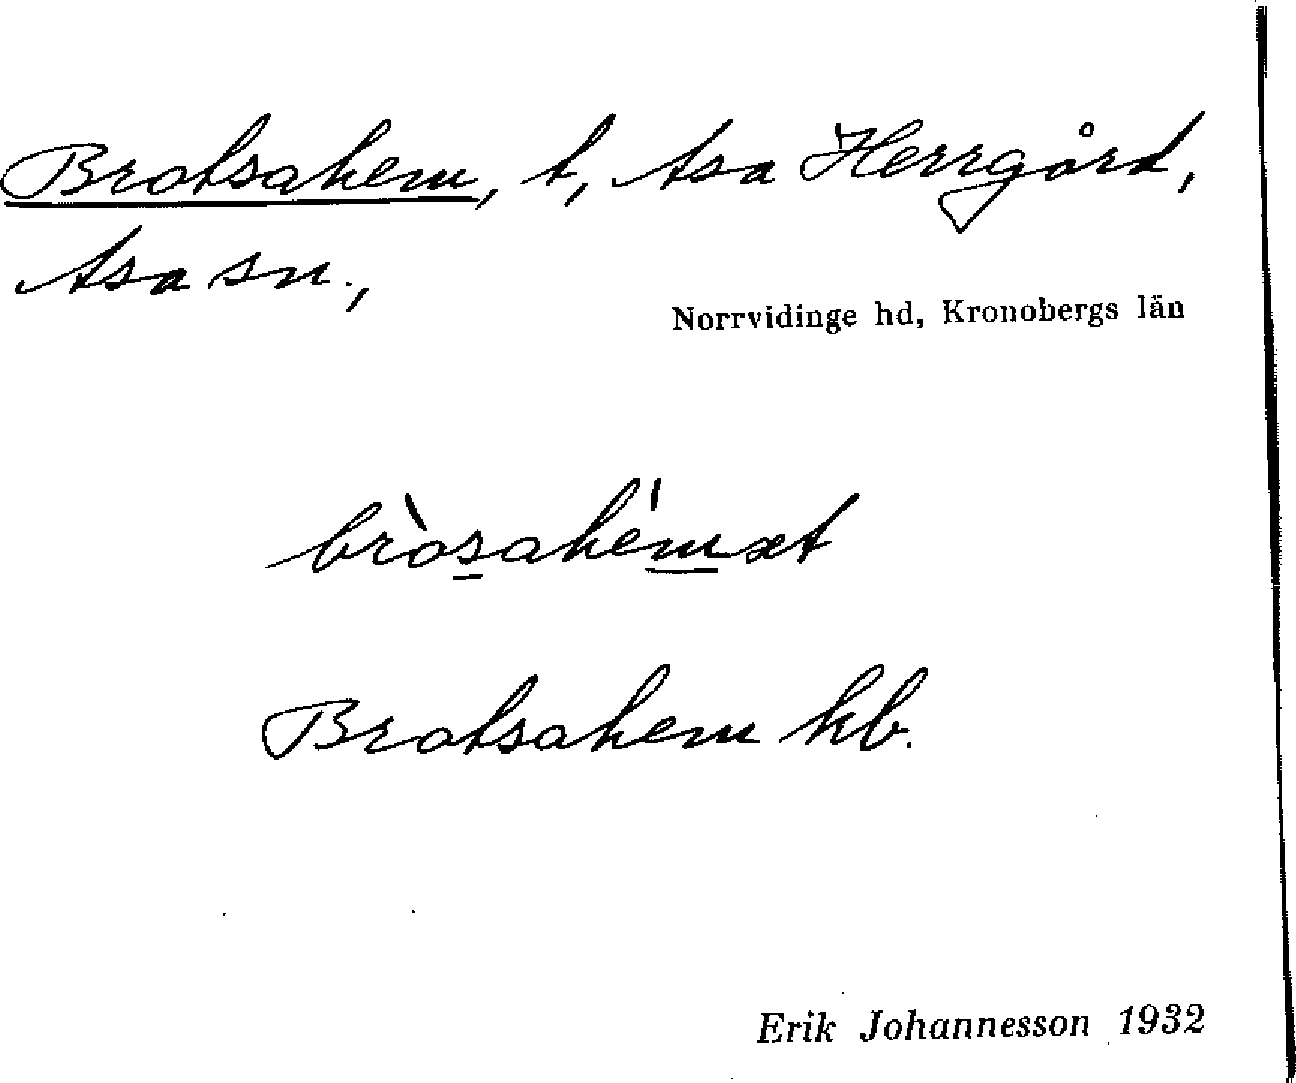 Brotsahem, t, Asa Herrgård,
Asa sn.,
Norrvidinge hd, Kronobergs län
bròsahémæt
Brotsahem kb.
Erik Johannesson 1932